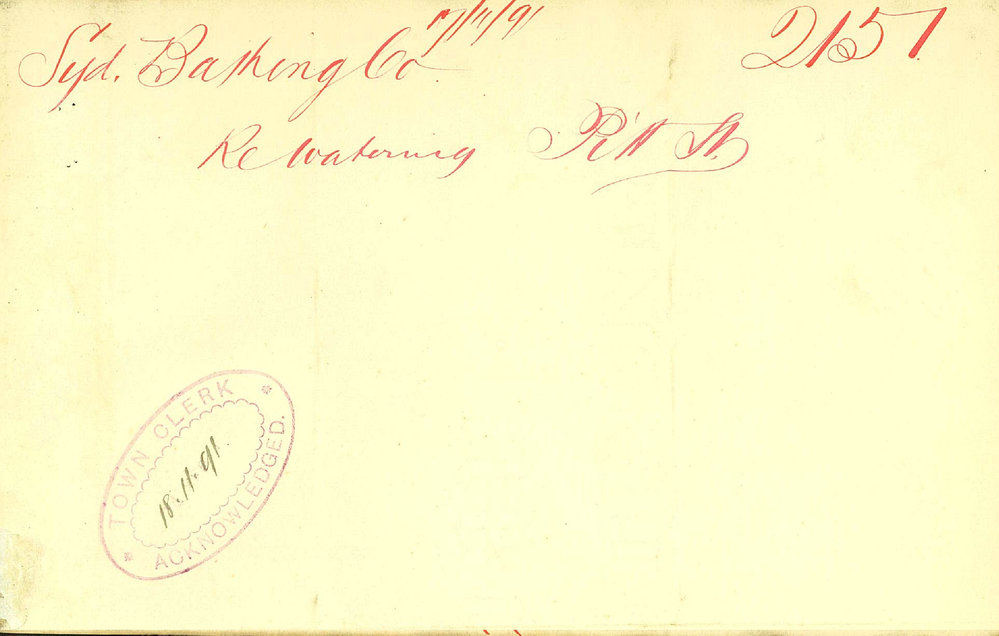 Syd. Bathing Co 17/11/91 2157
Re Watering Pitt St.
TOWN CLERK
18.11.91
ACKNOWLEDGED.